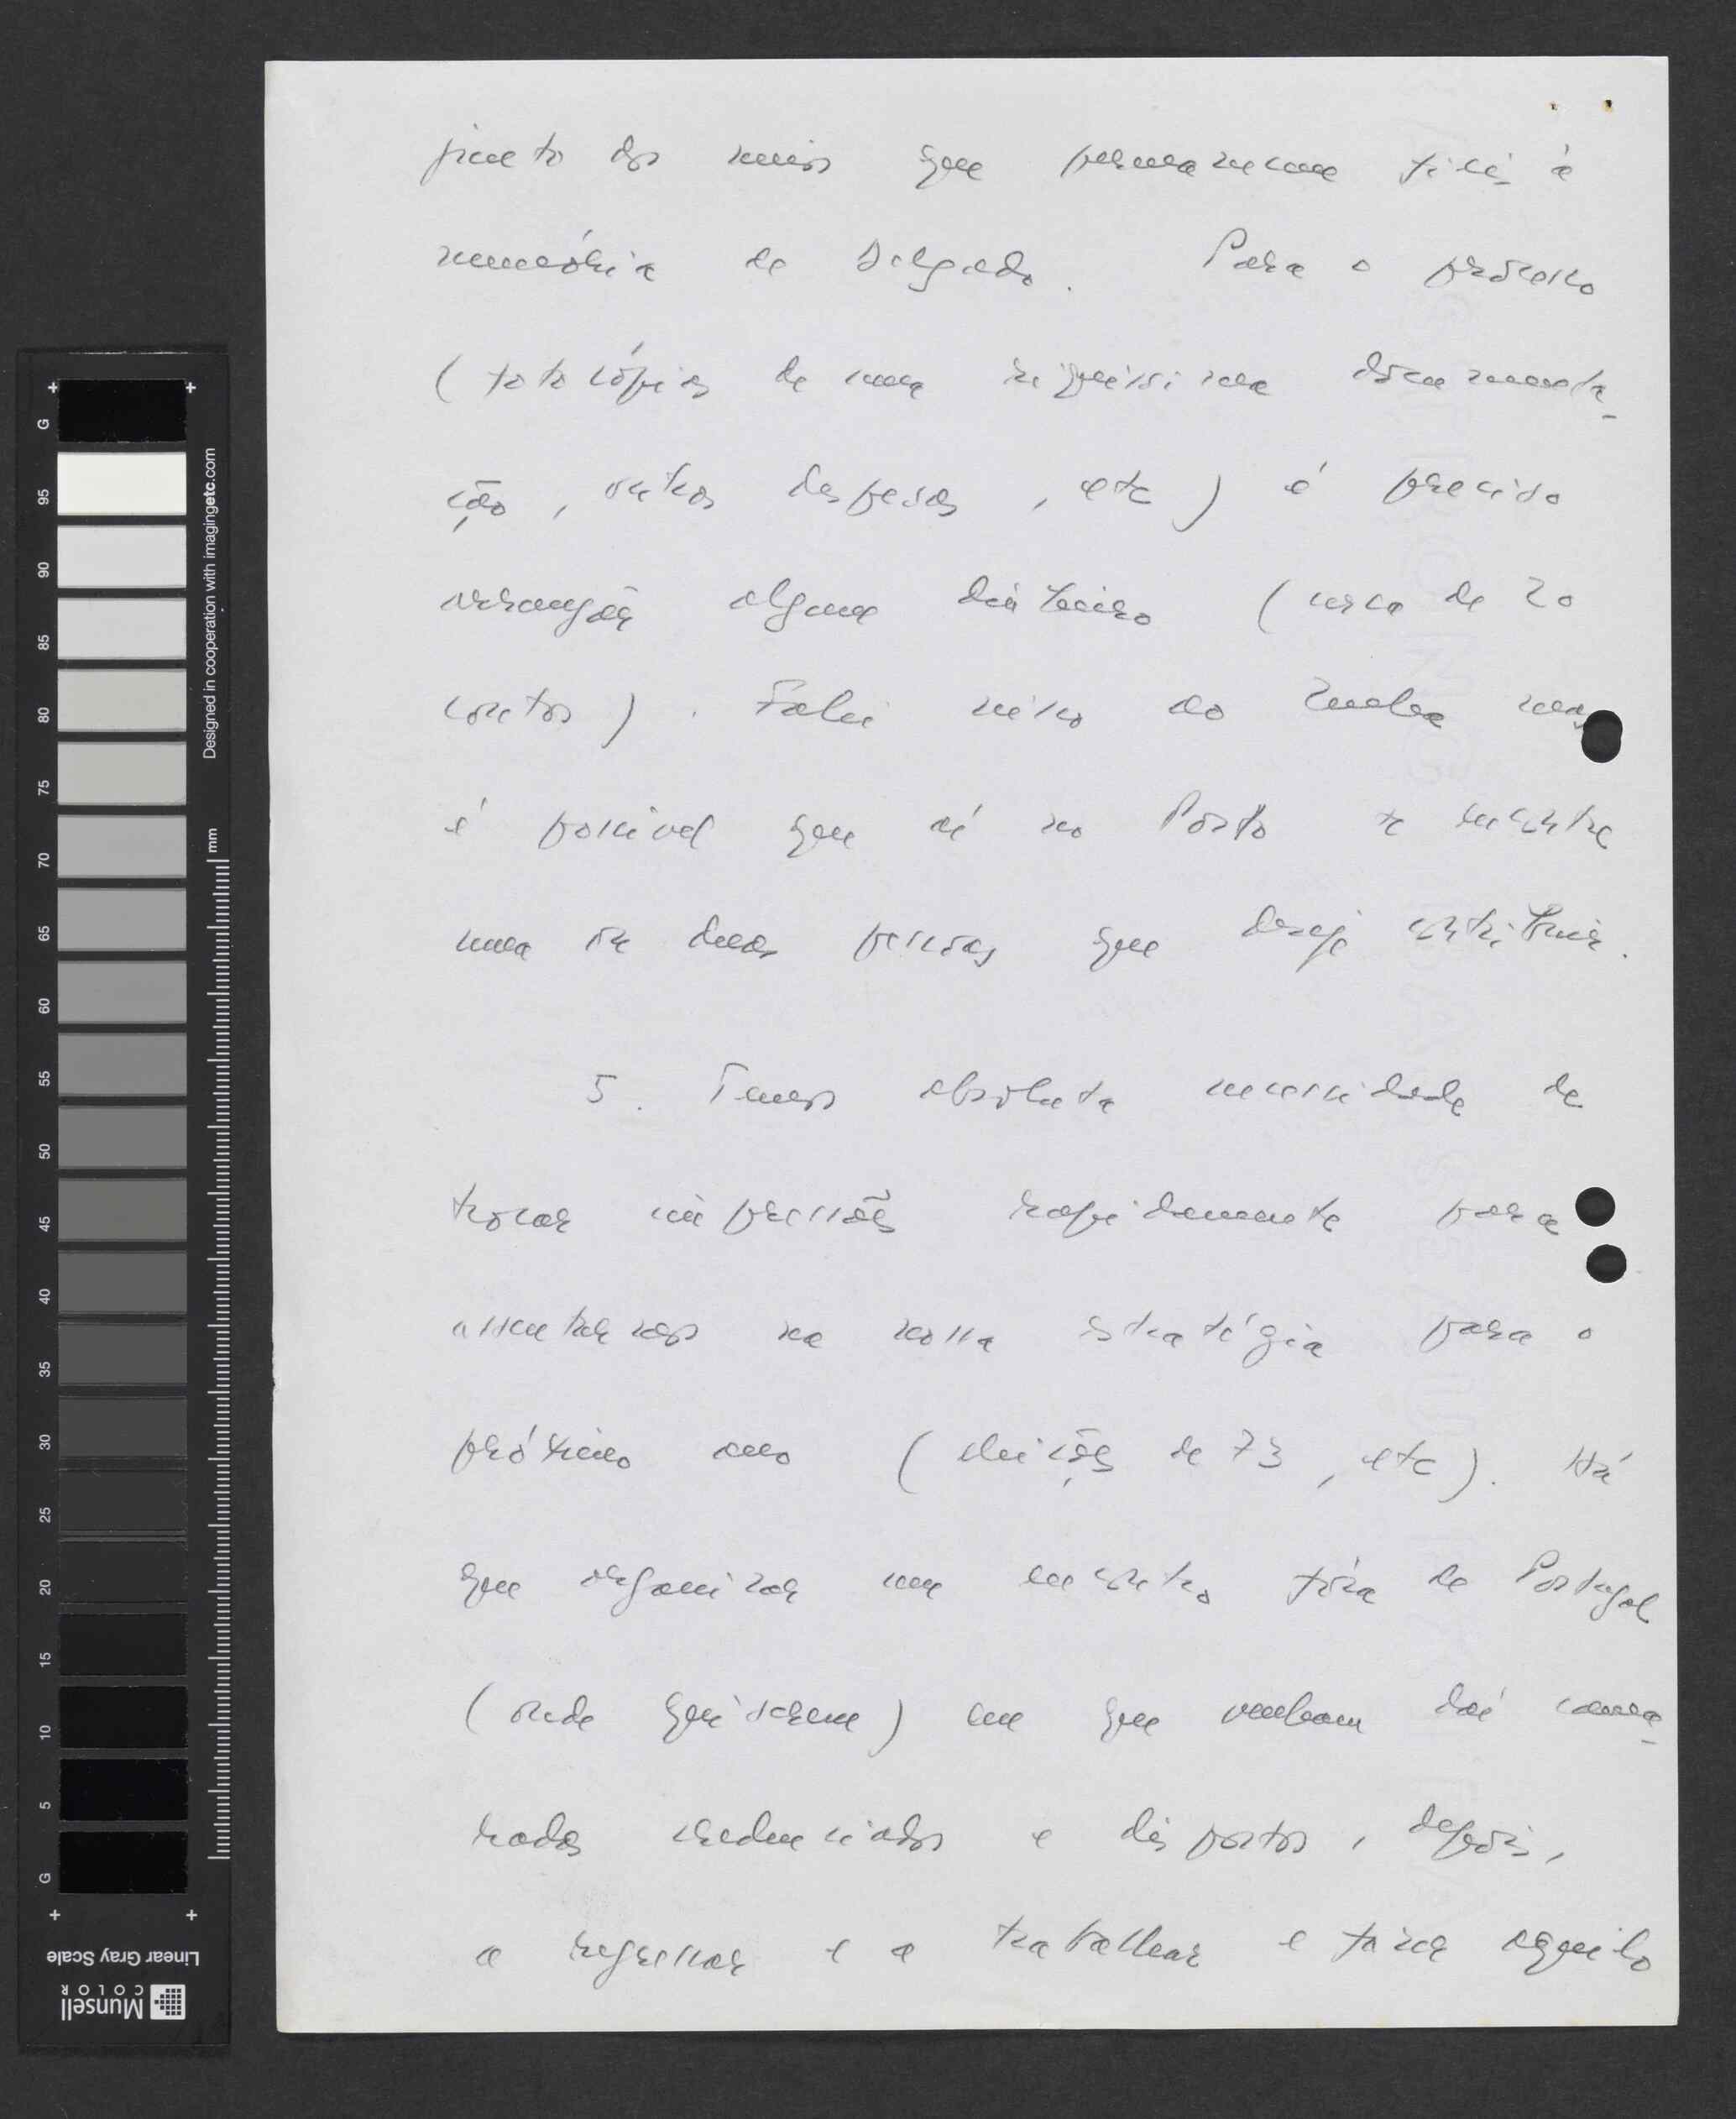 junto dos meios que permanecem fiéis à
memória de Delgado. Para o processo
(fotocópias de uma riquíssima documenta-
ção, outras despesas, etc) é preciso
arranjar algum dinheiro (cerca de 20
contos). Falei nisso ao mas
é possível que aí no Porto se encontre
uma ou duas pessoas que deseje contribuir.
5. Temos absoluta necessidade de
trocar impressões rapidamente para
assentarmos na nossa estratégia para o
próximo ano (eleições de 73, etc). Há
que organizar um encontro fóra de Portugal
(onde quiserem) em que venham daí cama-
radas credenciados e dispostos, depois,
a regressar e a trabalhar e fazer aquilo
G
95
90
85
80
75
70
65
60
55
50
45
40
35
30
25
20
15
10
5
G
Designed in cooperation with imagingetc.com
mm
Linear Gray Scale
Munsell
COLOR